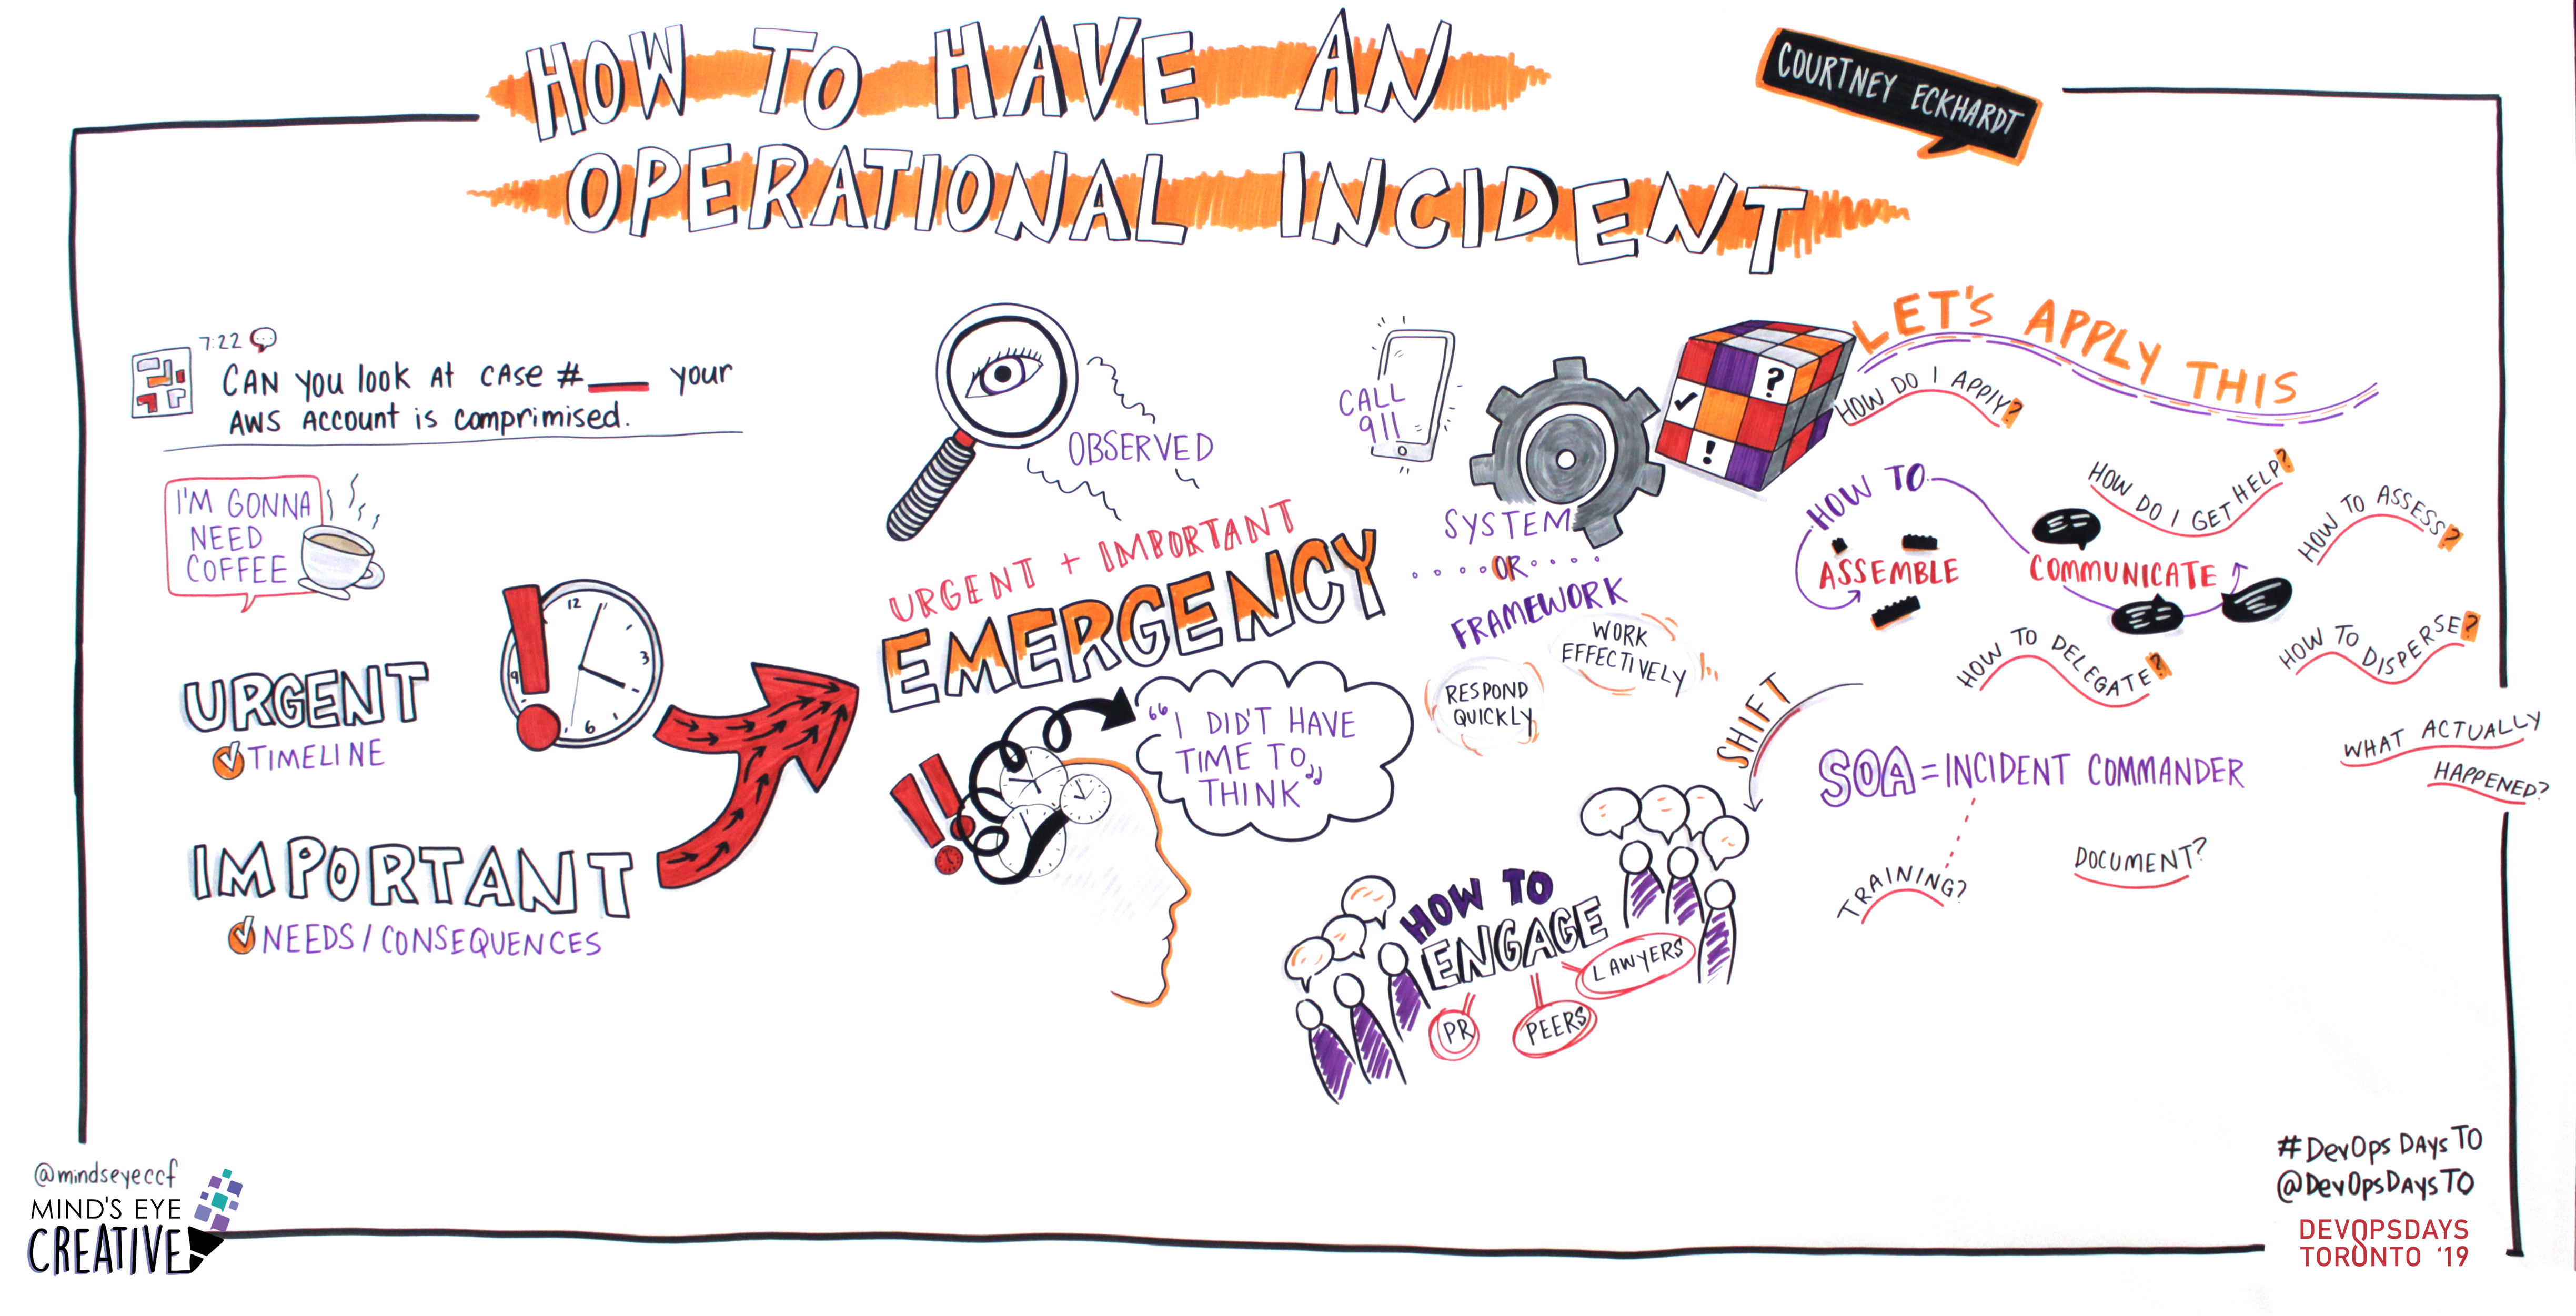 HOW TO HAVE AN
OPERATIONAL INCIDENT
COURTNEY ECKHARDT
7:22
CAN you look At CASe #___ your
AWS Account is comprimised.
I'M GONNA
NEED
COFFEE
URGENT
TIMELINE
12
3
6
9
IMPORTANT
NEEDS / CONSEQUENCES
OBSERVED
URGENT + IMPORTANT
EMERGENCY
"I DID'T HAVE
TIME TO
THINK"
CALL
911
SYSTEM
OR
FRAMEWORK
WORK
EFFECTIVELY
RESPOND
QUICKLY
?
!
LET'S APPLY THIS
HOW DO I APPlY?
HOW TO
ASSEMBLE
COMMUNICATE
HOW DO I GET HELP?
HOW TO ASSESS?
HOW TO DELEGATE?
HOW TO DISPERSE?
SHIFT
SOA = INCIDENT COMMANDER
TRAINING?
DOCUMENT?
WHAT ACTUALLY
HAPPENED?
HOW TO
ENGAGE
LAWYERS
PR
PEERS
@mindseyeccf
MIND'S EYE
CREATIVE
#DevOps DAys TO
@DevOpsDAysTO
DEVOPSDAYS
TORONTO '19